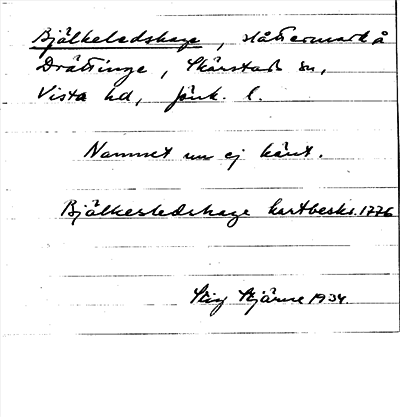 Bjälkeledshage, slåttermark å
Drättinge, Skärstads sn,
Vista hd, Jönk. l.
Namnet nu ej känt.
Bjälkesledshage kartbeskr. 1776
Stig Stjärne 1934